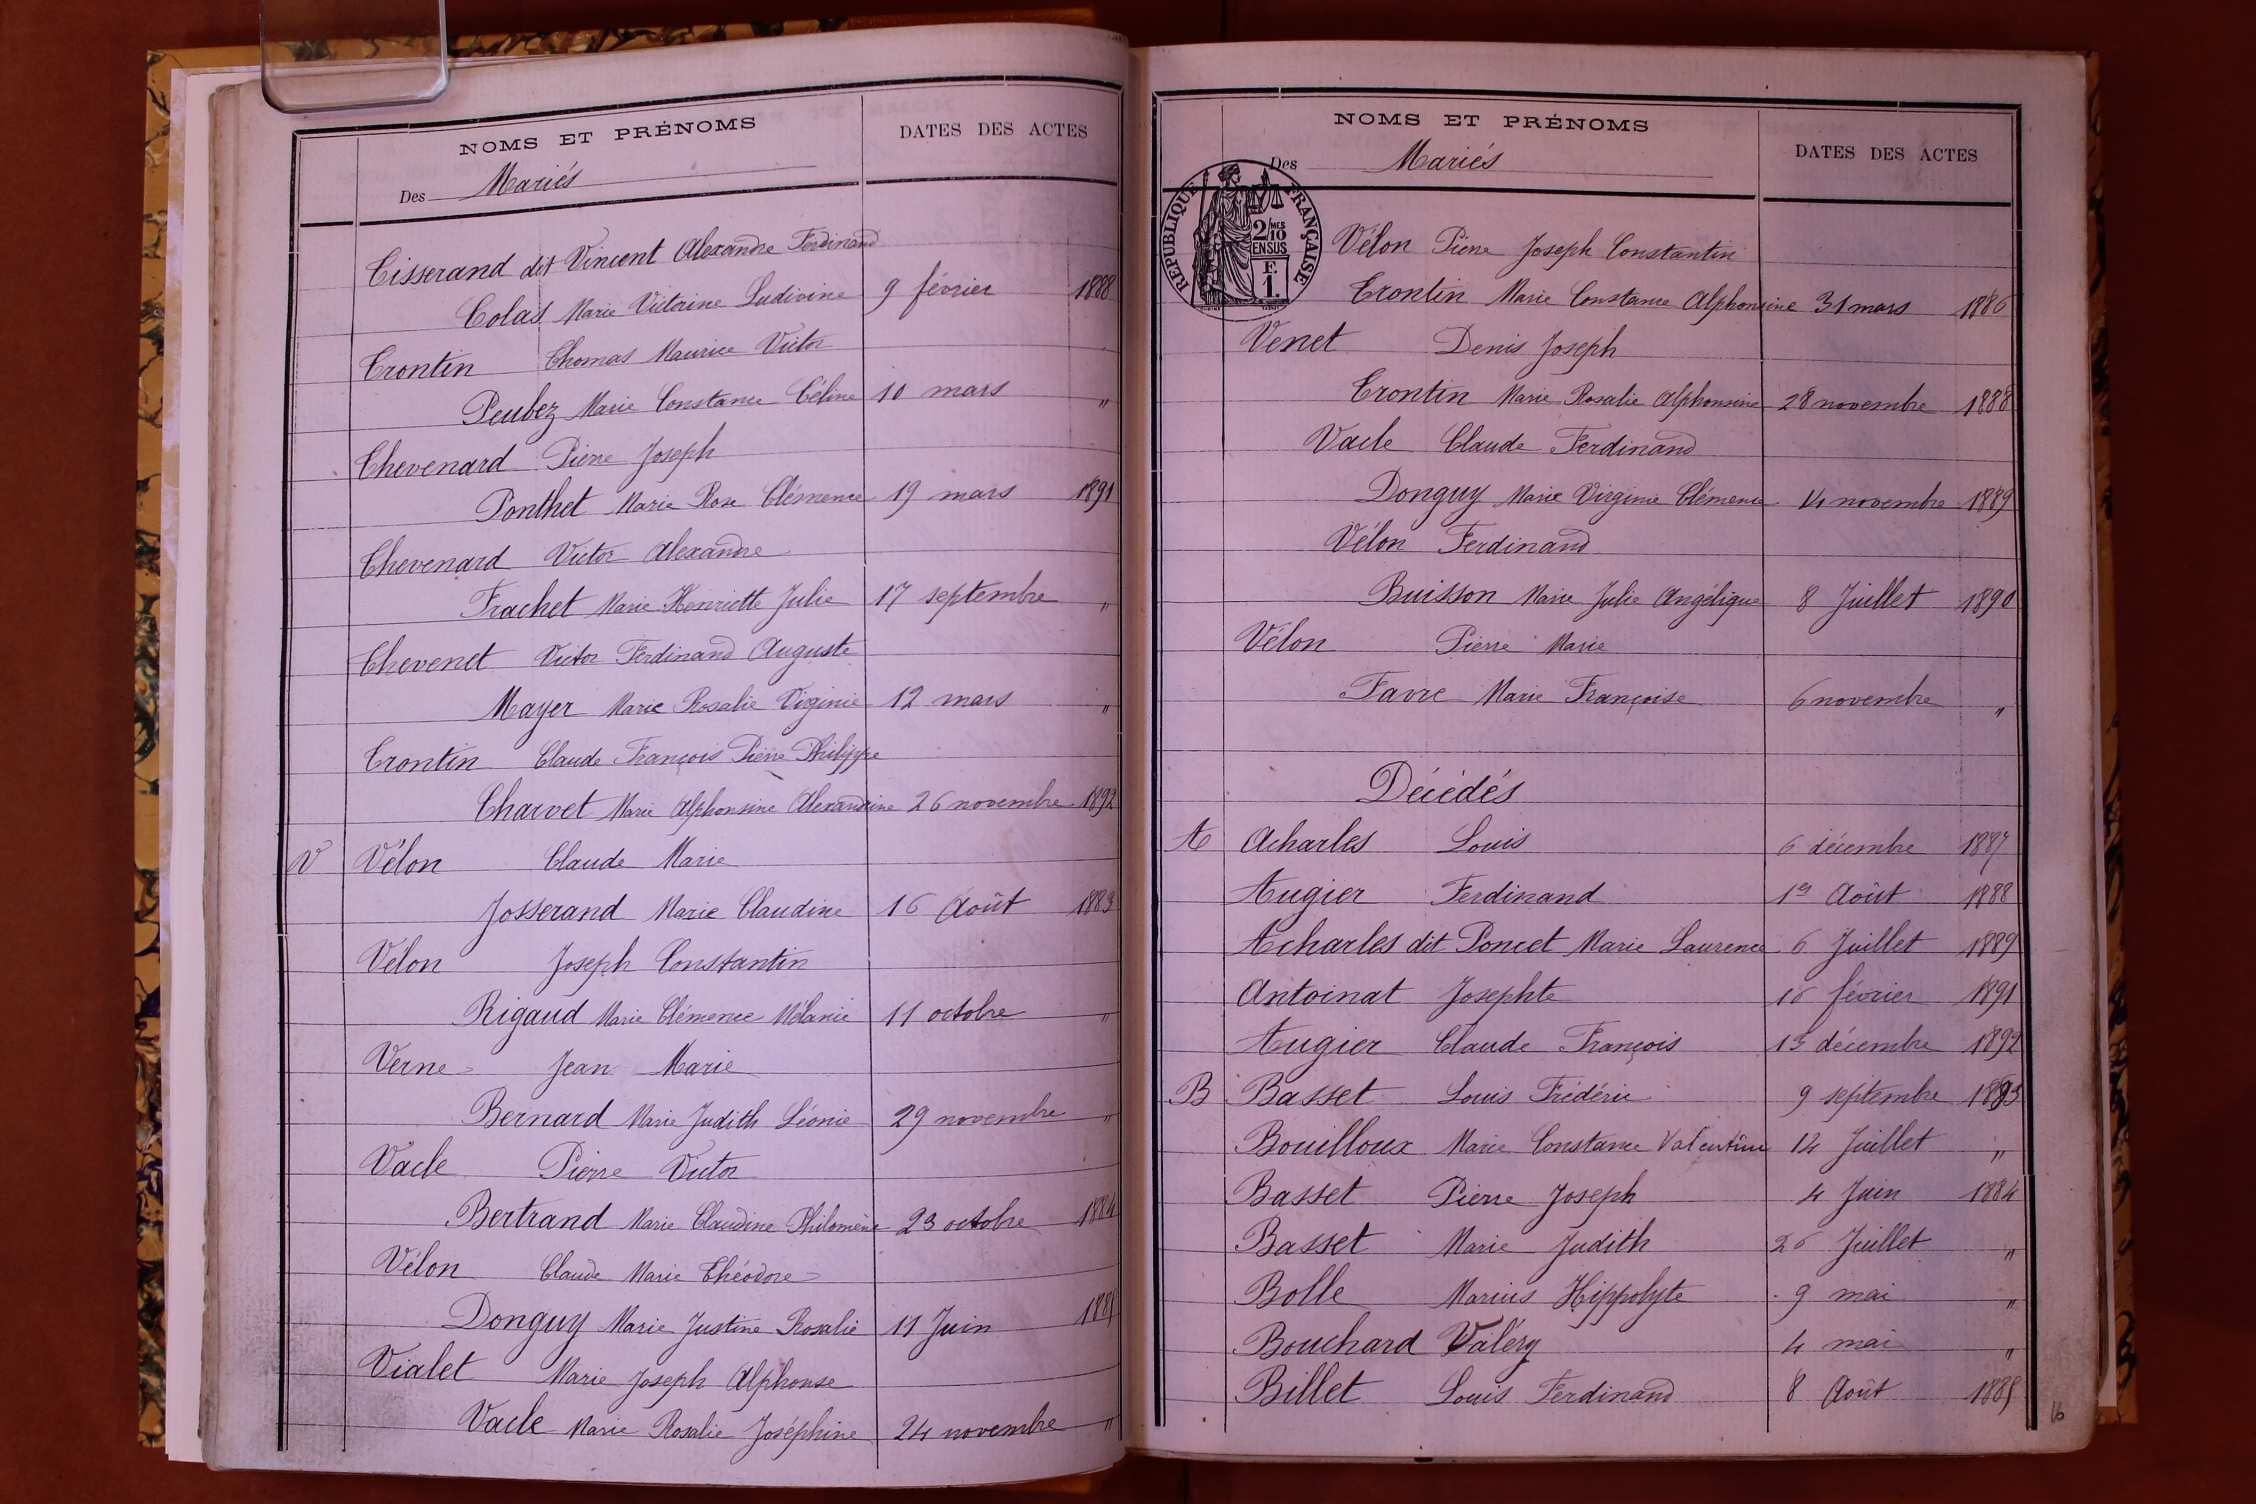 NOMS ET PRÉNOMS
DATES DES ACTES
Des Mariés
Tisserand dit Vincent Alexandre Ferdinand
Colas Marie Victorine Ludivine 9 février 1888
Trontin Thomas Maurice Victor
Peubez Marie Constance Céline 10 mars "
Thevenard Pierre Joseph
Ponthet Marie Rose Clémence 19 mars 1891
Thevenard Victor Alexandre
Frachet Marie Henriette Julie 17 septembre "
Thevenet Victor Ferdinand Auguste
Mayer Marie Rosalie Virginie 12 mars "
Trontin Claude François Pierre Philippe
Charvet Marie Alphonsine Alexandrine 26 novembre 1892
V Vélon Claude Marie
Josserand Marie Claudine 16 Août 1883
Vélon Joseph Constantin
Rigaud Marie Clémence Mélanie 11 octobre "
Verne Jean Marie
Bernard Marie Judith Léonie 29 novembre "
Vacle Pierre Victor
Bertrand Marie Claudine Philomène 23 octobre 1884
Vélon Claude Marie Théodore
Donguy Marie Justine Rosalie 11 Juin 1885
Vialet Marie Joseph Alphonse
Vacle Marie Rosalie Joséphine 24 novembre "
NOMS ET PRÉNOMS
DATES DES ACTES
Des Mariés
RÉPUBLIQUE FRANÇAISE
2/10 MES
EN SUS
F.
1.
Vélon Pierre Joseph Constantin
Trontin Marie Constance Alphonsine 31 mars 1886
Venet Denis Joseph
Trontin Marie Rosalie Alphonsine 28 novembre 1888
Vacle Claude Ferdinand
Donguy Marie Virginie Clémence 14 novembre 1889
Vélon Ferdinand
Buisson Marie Julie Angélique 8 Juillet 1890
Vélon Pierre Marie
Favre Marie Françoise 6 novembre "
Décédés
A Acharles Louis 6 décembre 1887
Augier Ferdinand 1er Août 1888
Acharles dit Poncet Marie Laurence 6 Juillet 1889
Antoinat Josephte 16 février 1891
Augier Claude François 13 décembre 1892
B Basset Louis Frédéric 9 septembre 1883
Bouilloux Marie Constance Valentine 14 Juillet "
Basset Pierre Joseph 4 Juin 1884
Basset Marie Judith 26 Juillet "
Bolle Marius Hippolyte 9 mai "
Bouchard Valéry 4 mai "
Billet Louis Ferdinand 8 Août 1885
16